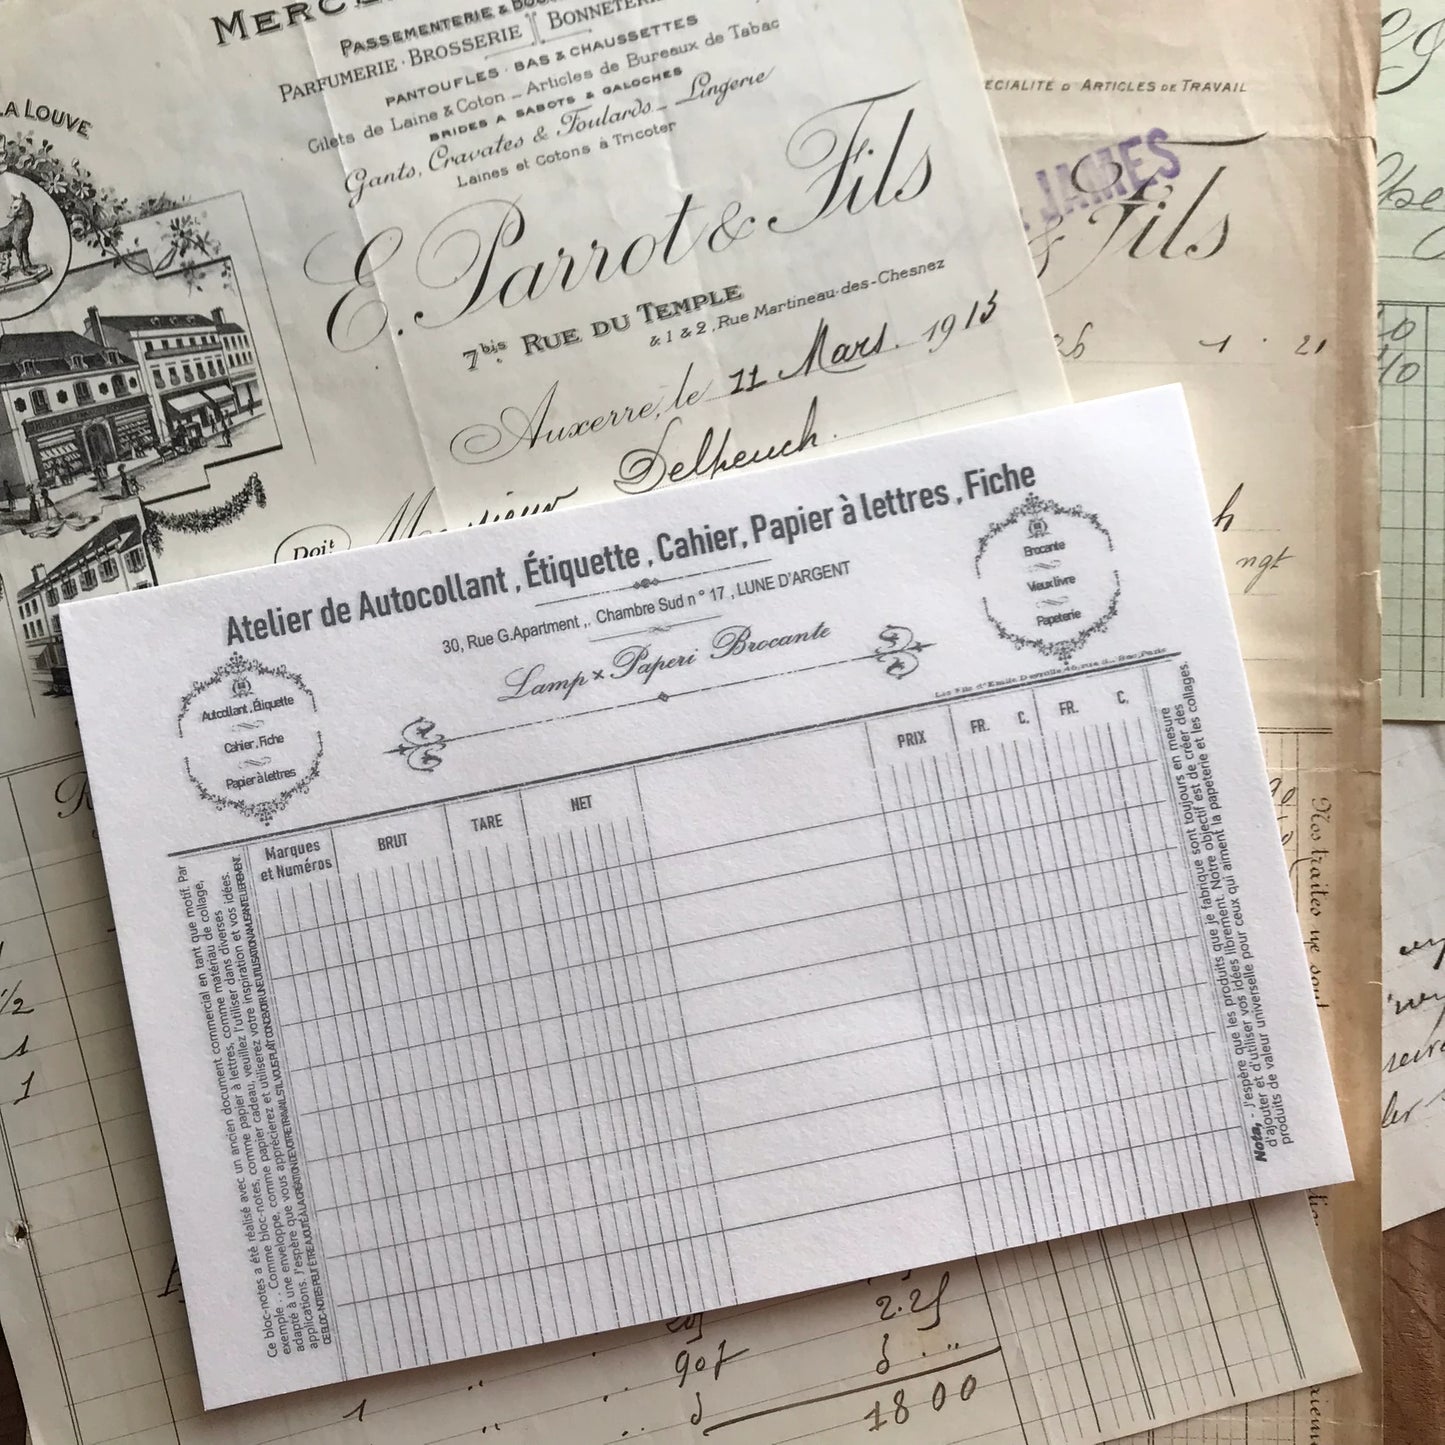 LA LOUVE
PASSEMENTERIE &
PARFUMERIE · BROSSERIE
BONNETERIE
PANTOUFLES · BAS & CHAUSSETTES
Gilets de Laine & Coton _ Articles de Bureaux de Tabac
BRIDES A SABOTS & GALOCHES
Gants, Cravates & Foulards _ Lingerie
Laines et Cotons à Tricoter
E. Parrot & Fils
7bis RUE DU TEMPLE
& 1 & 2, Rue Martineau-des-Chesnez
Auxerre, le 11 Mars. 1913
Doit Monsieur Delpeuch.
ARTICLES DE TRAVAIL
JAMES
& Fils
1 . 21
Atelier de Autocollant , Étiquette , Cahier, Papier à lettres , Fiche
30, Rue G.Apartment ,. Chambre Sud n° 17 , LUNE D'ARGENT
Lamp × Paperi Brocante
Autocollant , Étiquette
Cahier , Fiche
Papier à lettres
Brocante
Vieux livre
Papeterie
Les Fils d'Emile Deyrolle 46, rue du Bac, Paris
Marques
et Numéros
BRUT
TARE
NET
PRIX
FR. C.
FR. C.
Ce bloc-notes a été réalisé avec un ancien document commercial en tant que motif. Par
exemple . . Comme bloc-notes, comme papier à lettres, comme matériau de collage,
adapté à une enveloppe, comme papier cadeau, veuillez l'utiliser dans diverses
applications. J'espère que vous apprécierez et utiliserez votre inspiration et vos idées.
CE BLOC-NOTES PEUT ÊTRE AJOUTÉ À LA CRÉATION DE VOTRE TRAVAIL S'IL VOUS PLAÎT CONCEVOIR UNE UTILISATION AMUSANTE LIBREMENT.
Nota, - J'espère que les produits que je fabrique sont toujours en mesure
d'ajouter et d'utiliser vos idées librement. Notre objectif est de créer des
produits de valeur universelle pour ceux qui aiment la papeterie et les collages.
Nos traites ne sont
1/2
1
1
2.25
90f
1
1800